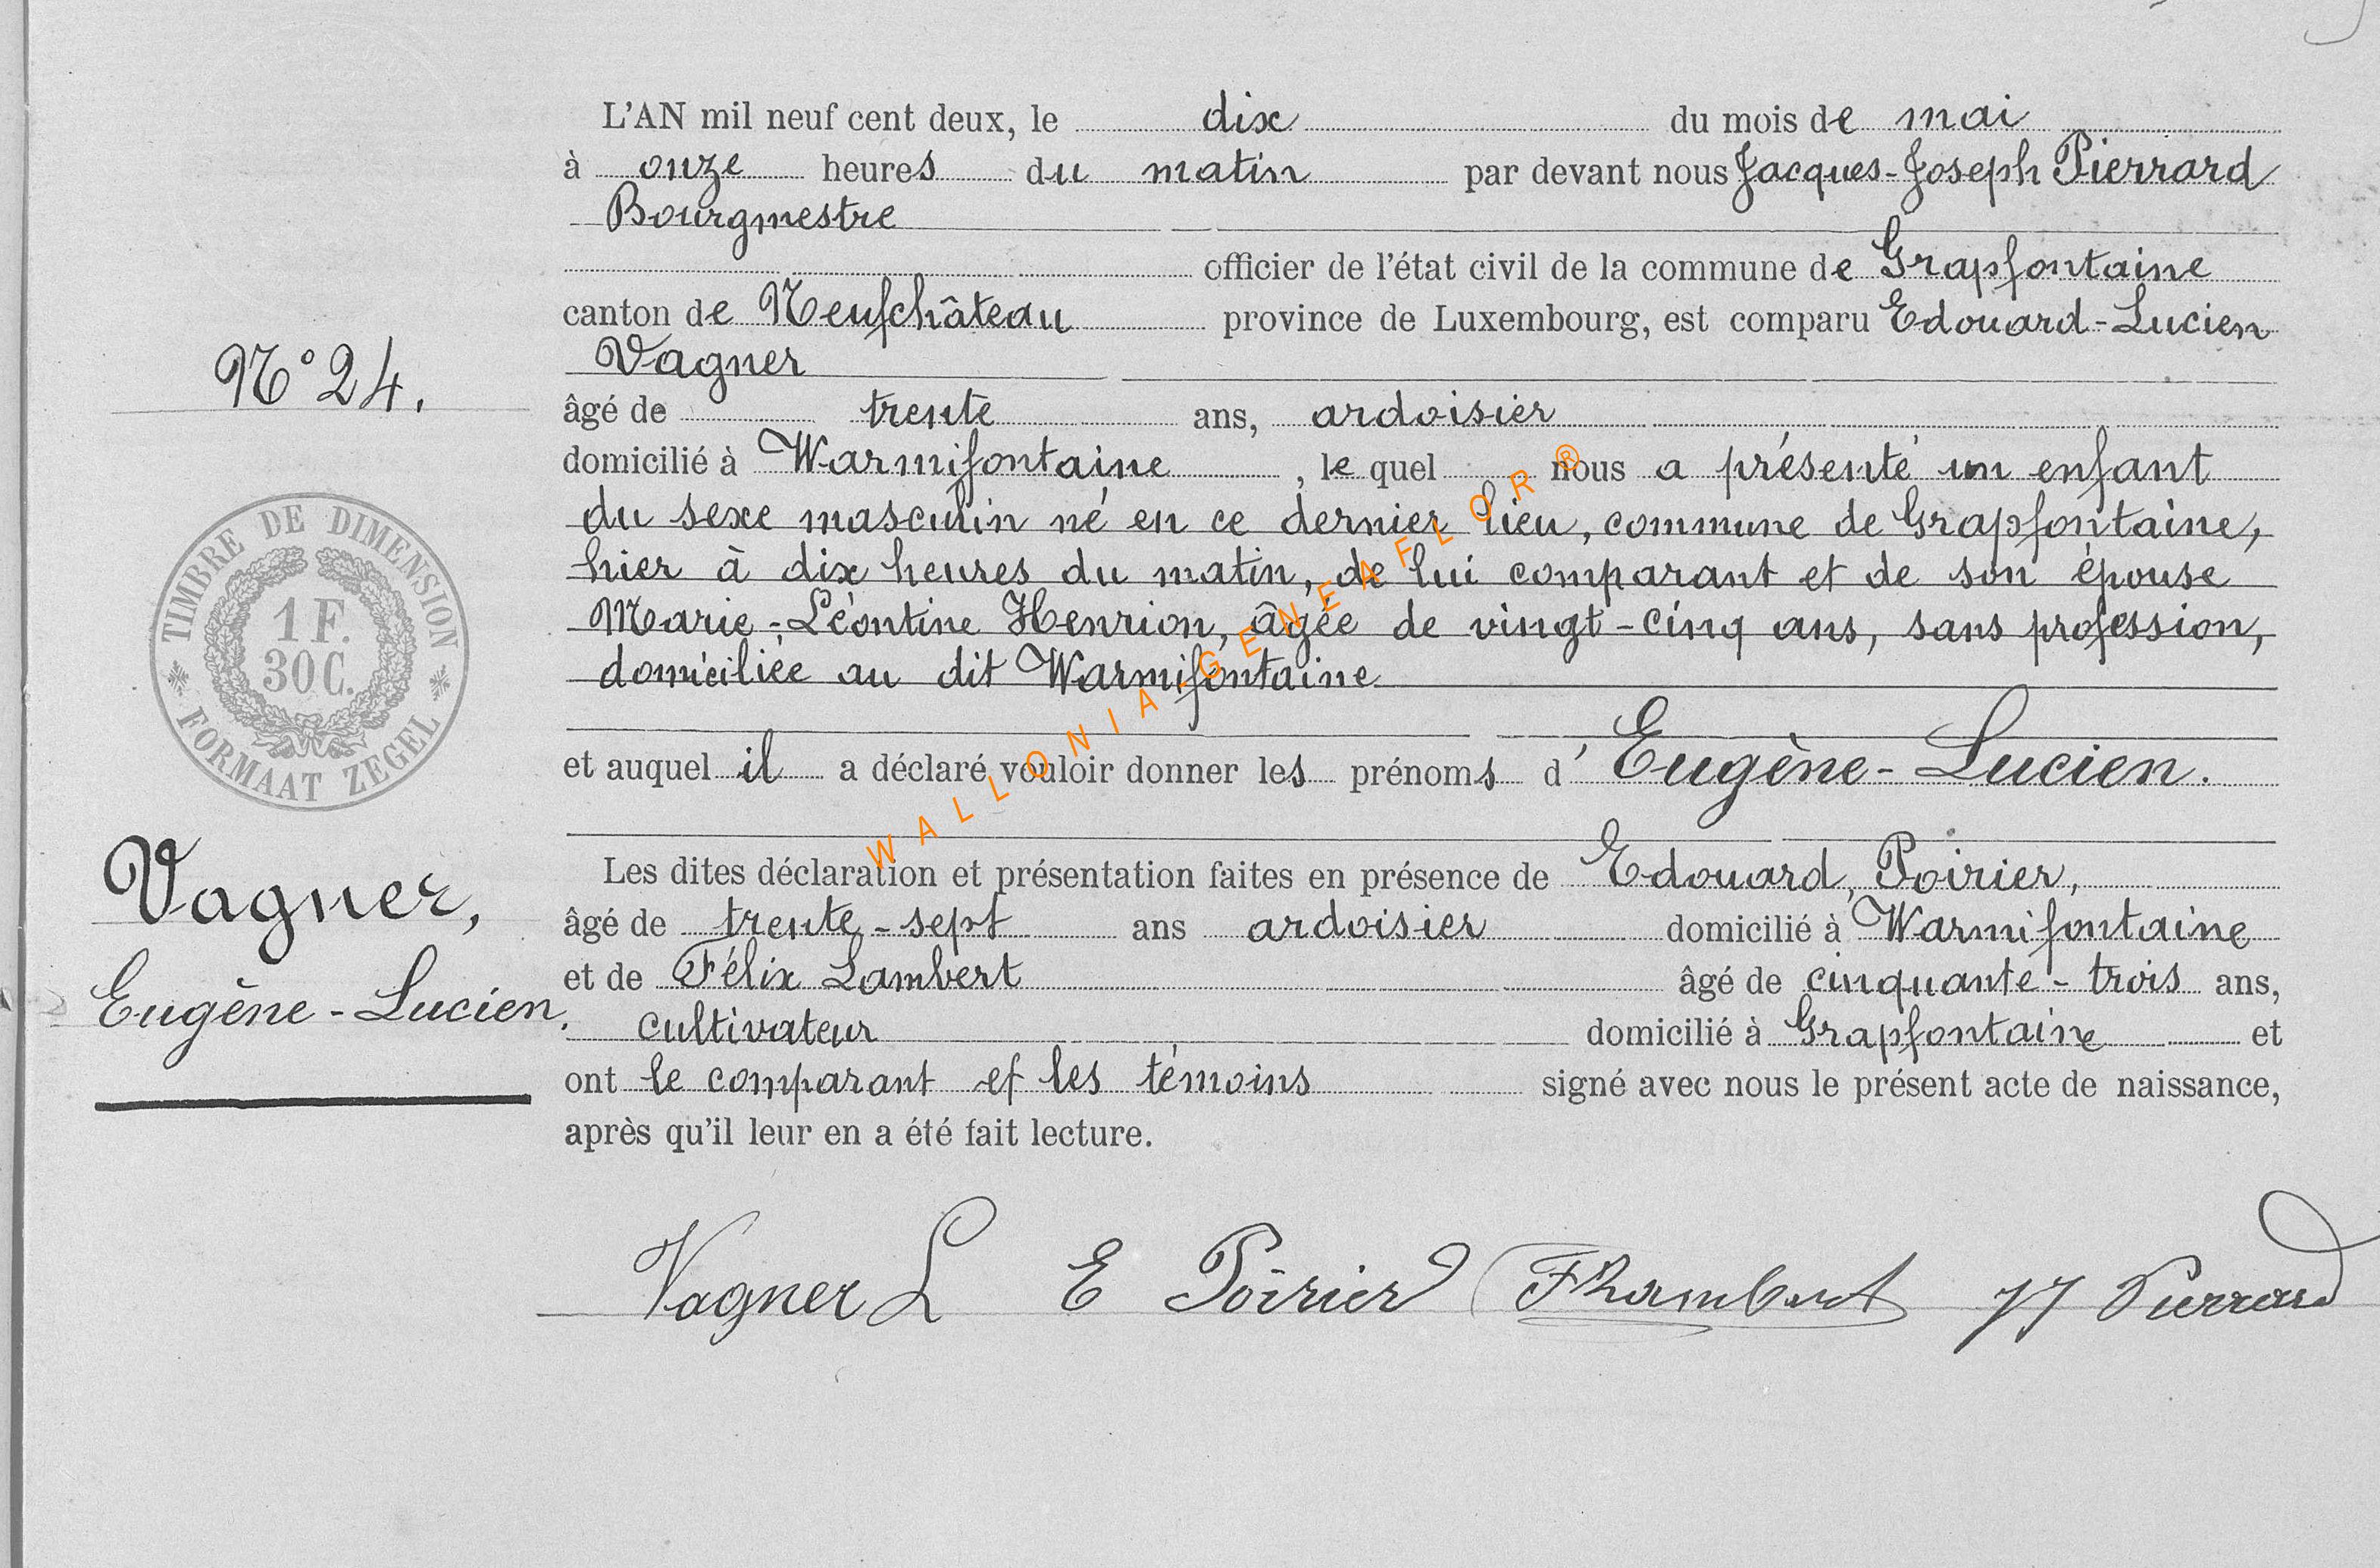 L'AN mil neuf cent deux, le dix du mois de mai
à onze heures du matin par devant nous Jacques-Joseph Pierrard
Bourgmestre
officier de l'état civil de la commune de Grapfontaine
canton de Neufchâteau province de Luxembourg, est comparu Edouard-Lucien
Vagner
N° 24.
âgé de trente ans, ardoisier
domicilié à Warmifontaine, le quel nous a présenté un enfant
du sexe masculin né en ce dernier lieu, commune de Grapfontaine,
hier à dix heures du matin, de lui comparant et de son épouse
Marie-Léontine Henrion, âgée de vingt-cinq ans, sans profession,
domiciliée au dit Warmifontaine
TIMBRE DE DIMENSION
1 F.
30 C.
FORMAAT ZEGEL
et auquel il a déclaré vouloir donner les prénoms d'Eugène-Lucien.
Vagner,
Eugène-Lucien.
Les dites déclaration et présentation faites en présence de Edouard, Poirier,
âgé de trente-sept ans ardoisier domicilié à Warmifontaine
et de Félix Lambert âgé de cinquante-trois ans,
cultivateur domicilié à Grapfontaine et
ont le comparant et les témoins signé avec nous le présent acte de naissance,
après qu'il leur en a été fait lecture.
Vagner L E Poirier F Lambert JJ Pierrard
WALLONIA-GENEAFLOR®